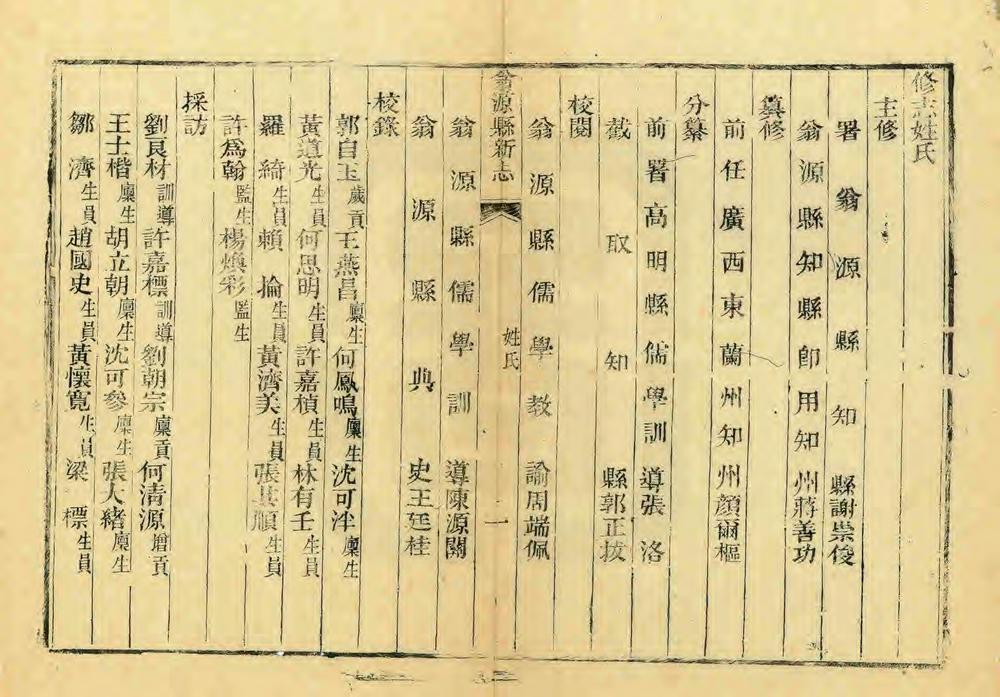 修志姓氏
主修
署翁源縣知縣謝崇俊
翁源縣知縣卽用知州蔣善功
纂修
前任廣西東蘭州知州顏爾樞
分纂
前署高明縣儒學訓導張洛
截取知縣郭正拔
校閱
翁源縣儒學教諭周端佩
翁源縣新志
姓氏
一
翁源縣儒學訓導陳源闊
翁源縣典史王廷桂
校錄
郭自玉歲貢 王燕昌廩生 何鳳鳴廩生 沈可泮廩生
黃道光生員 何思明生員 許嘉楨生員 林有壬生員
羅綺生員 賴掄生員 黃濟美生員 張其順生員
許爲翰監生 楊煥彩監生
採訪
劉良材訓導 許嘉標訓導 劉朝宗廩貢 何清源增貢
王士楷廩生 胡立朝廩生 沈可參廩生 張大緒廩生
鄒濟生員 趙國史生員 黃懷寬生員 梁標生員